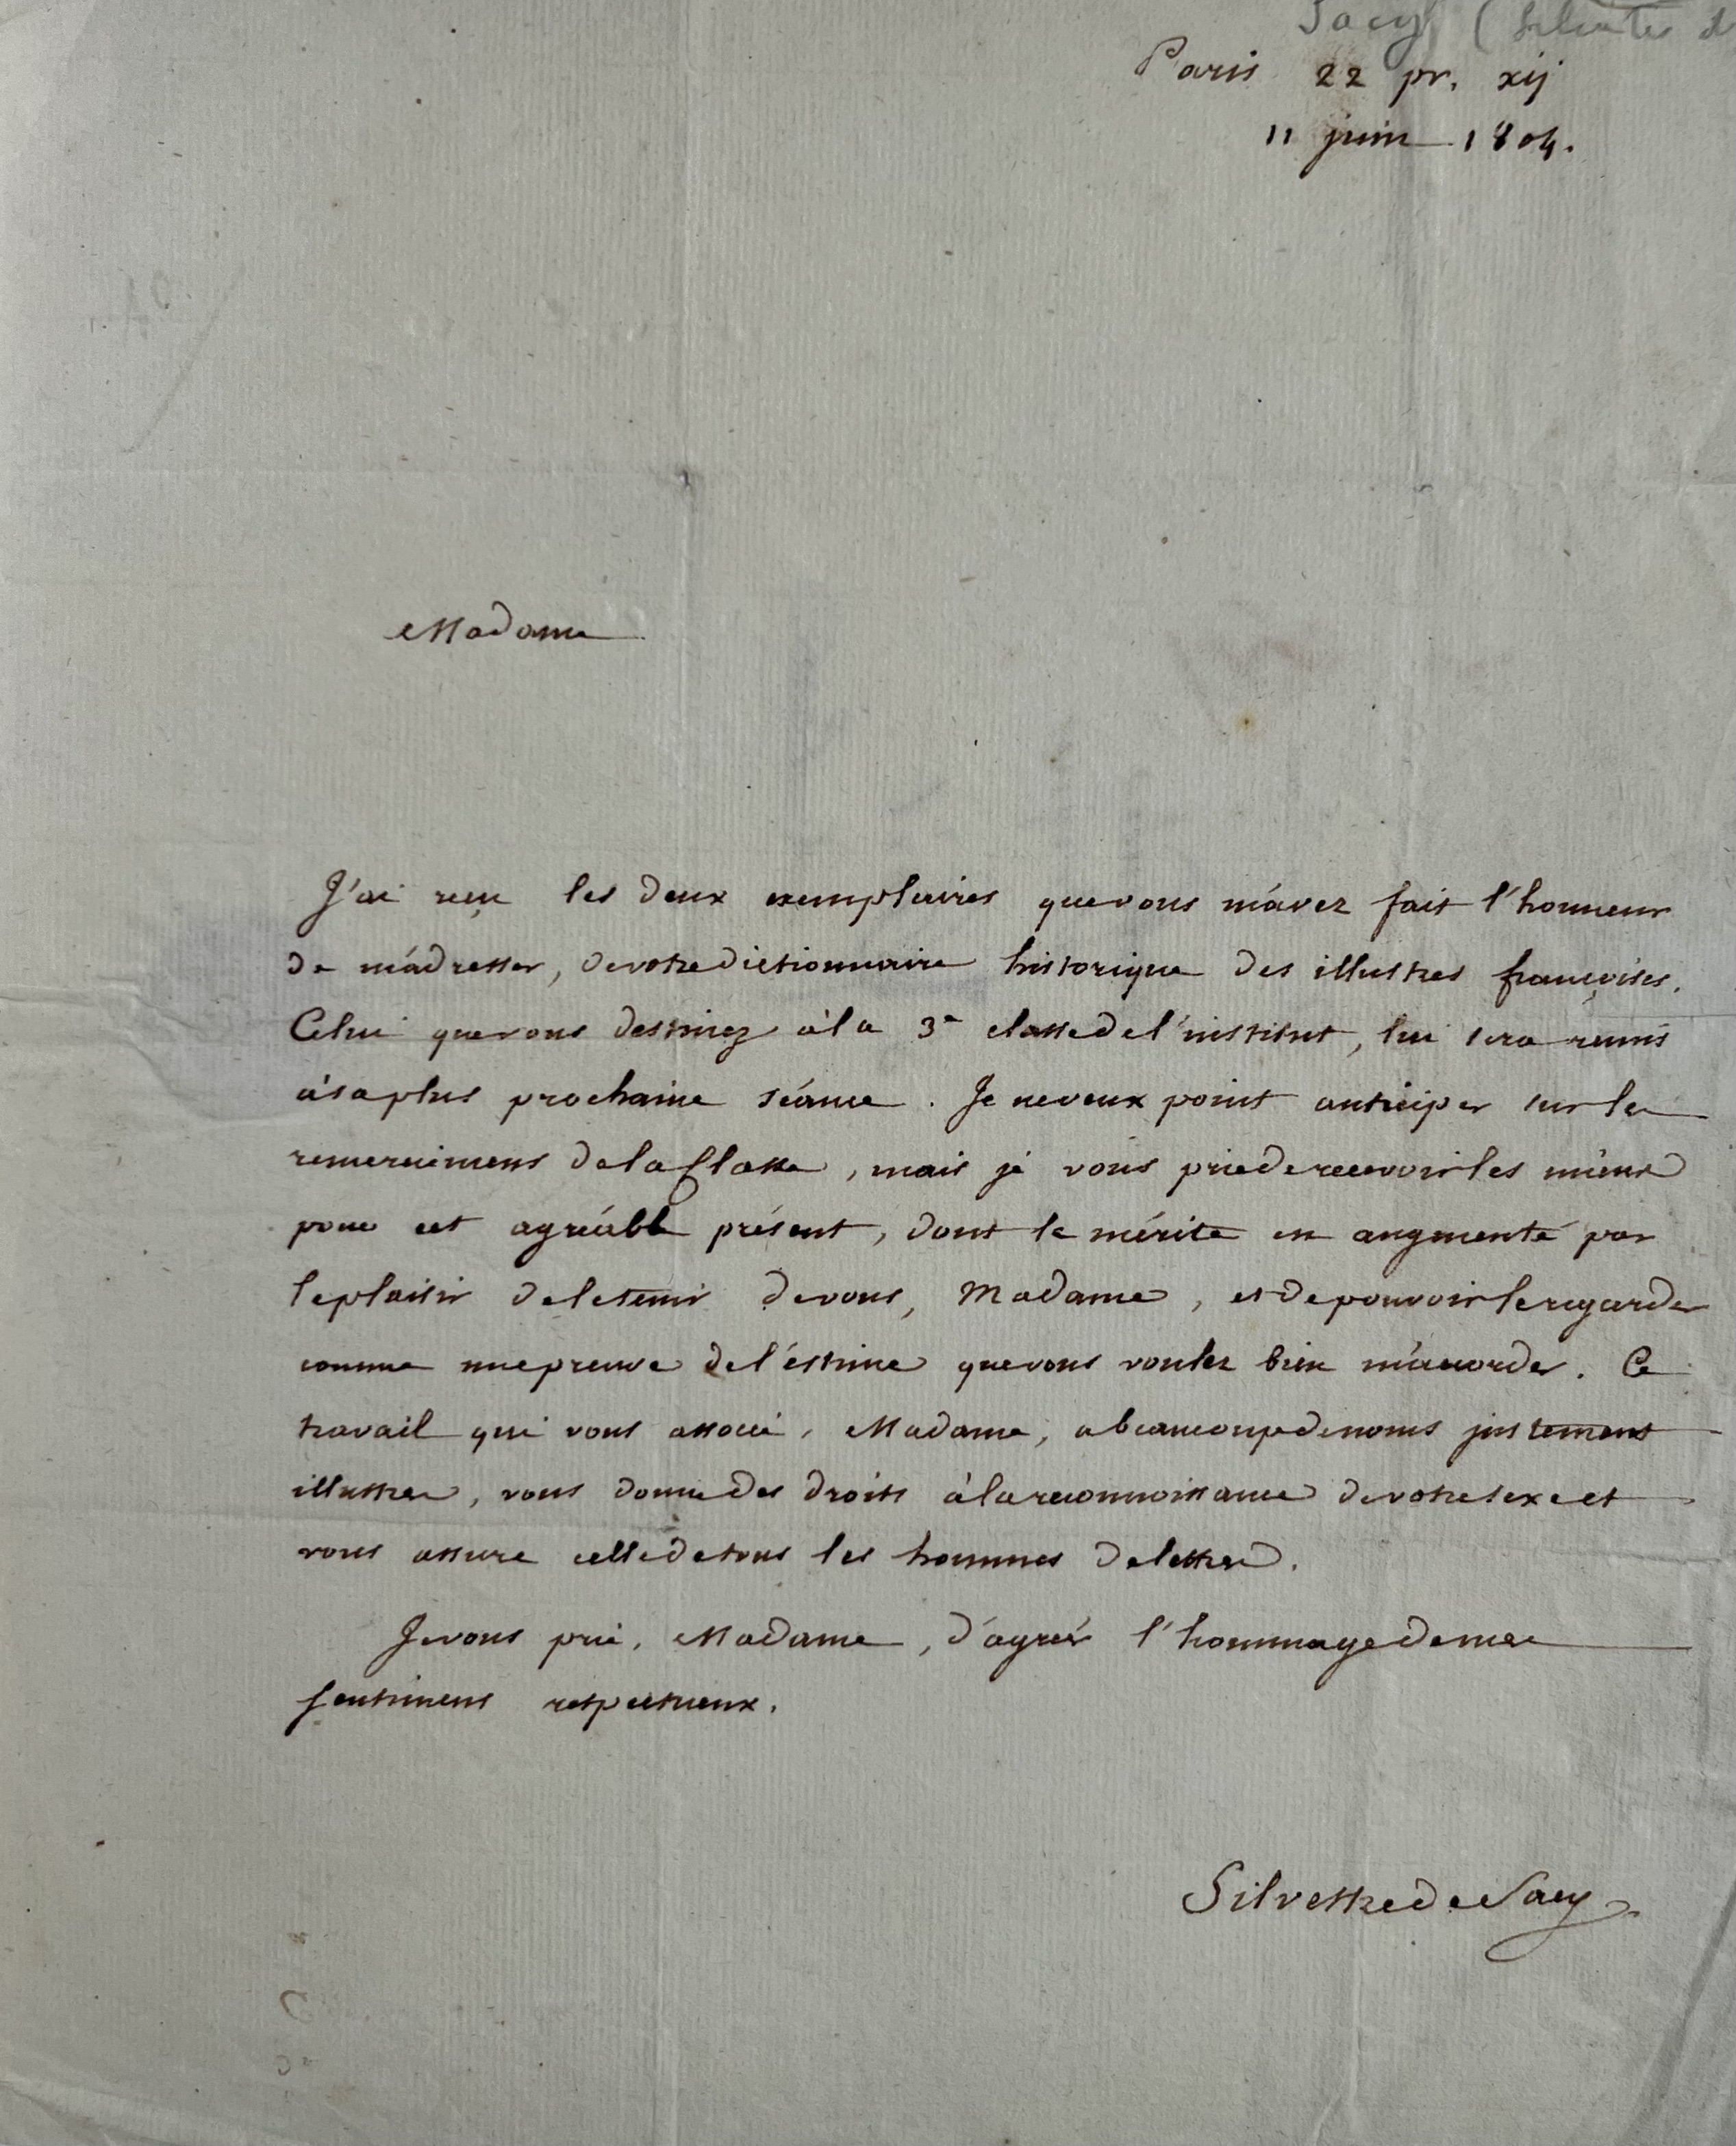 Sacy (Silvestre d
Paris 22 pr. xij
11 juin 1804.
Madame
J'ai reçu les deux exemplaires que vous m'avez fait l'honneur
de m'adresser, de votre dictionnaire historique des illustres françoises.
Celui que vous destinez à la 3e classe de l'institut, lui sera remis
à sa plus prochaine séance. Je ne veux point anticiper sur les
remerciemens de la Classe, mais je vous prie de recevoir les miens
pour cet agréable présent, dont le mérite est augmenté par
le plaisir de le tenir de vous, Madame, et de pouvoir le regarder
comme une preuve de l'estime que vous voulez bien m'accorder. Ce
travail qui vous associe, Madame, a beaucoup de noms justement
illustres, vous donne des droits à la reconnoissance de votre sexe et
vous assure celle de tous les hommes de lettres.
Je vous prie, Madame, d'agréer l'hommage de mes
sentimens respectueux.
Silvestre de Sacy